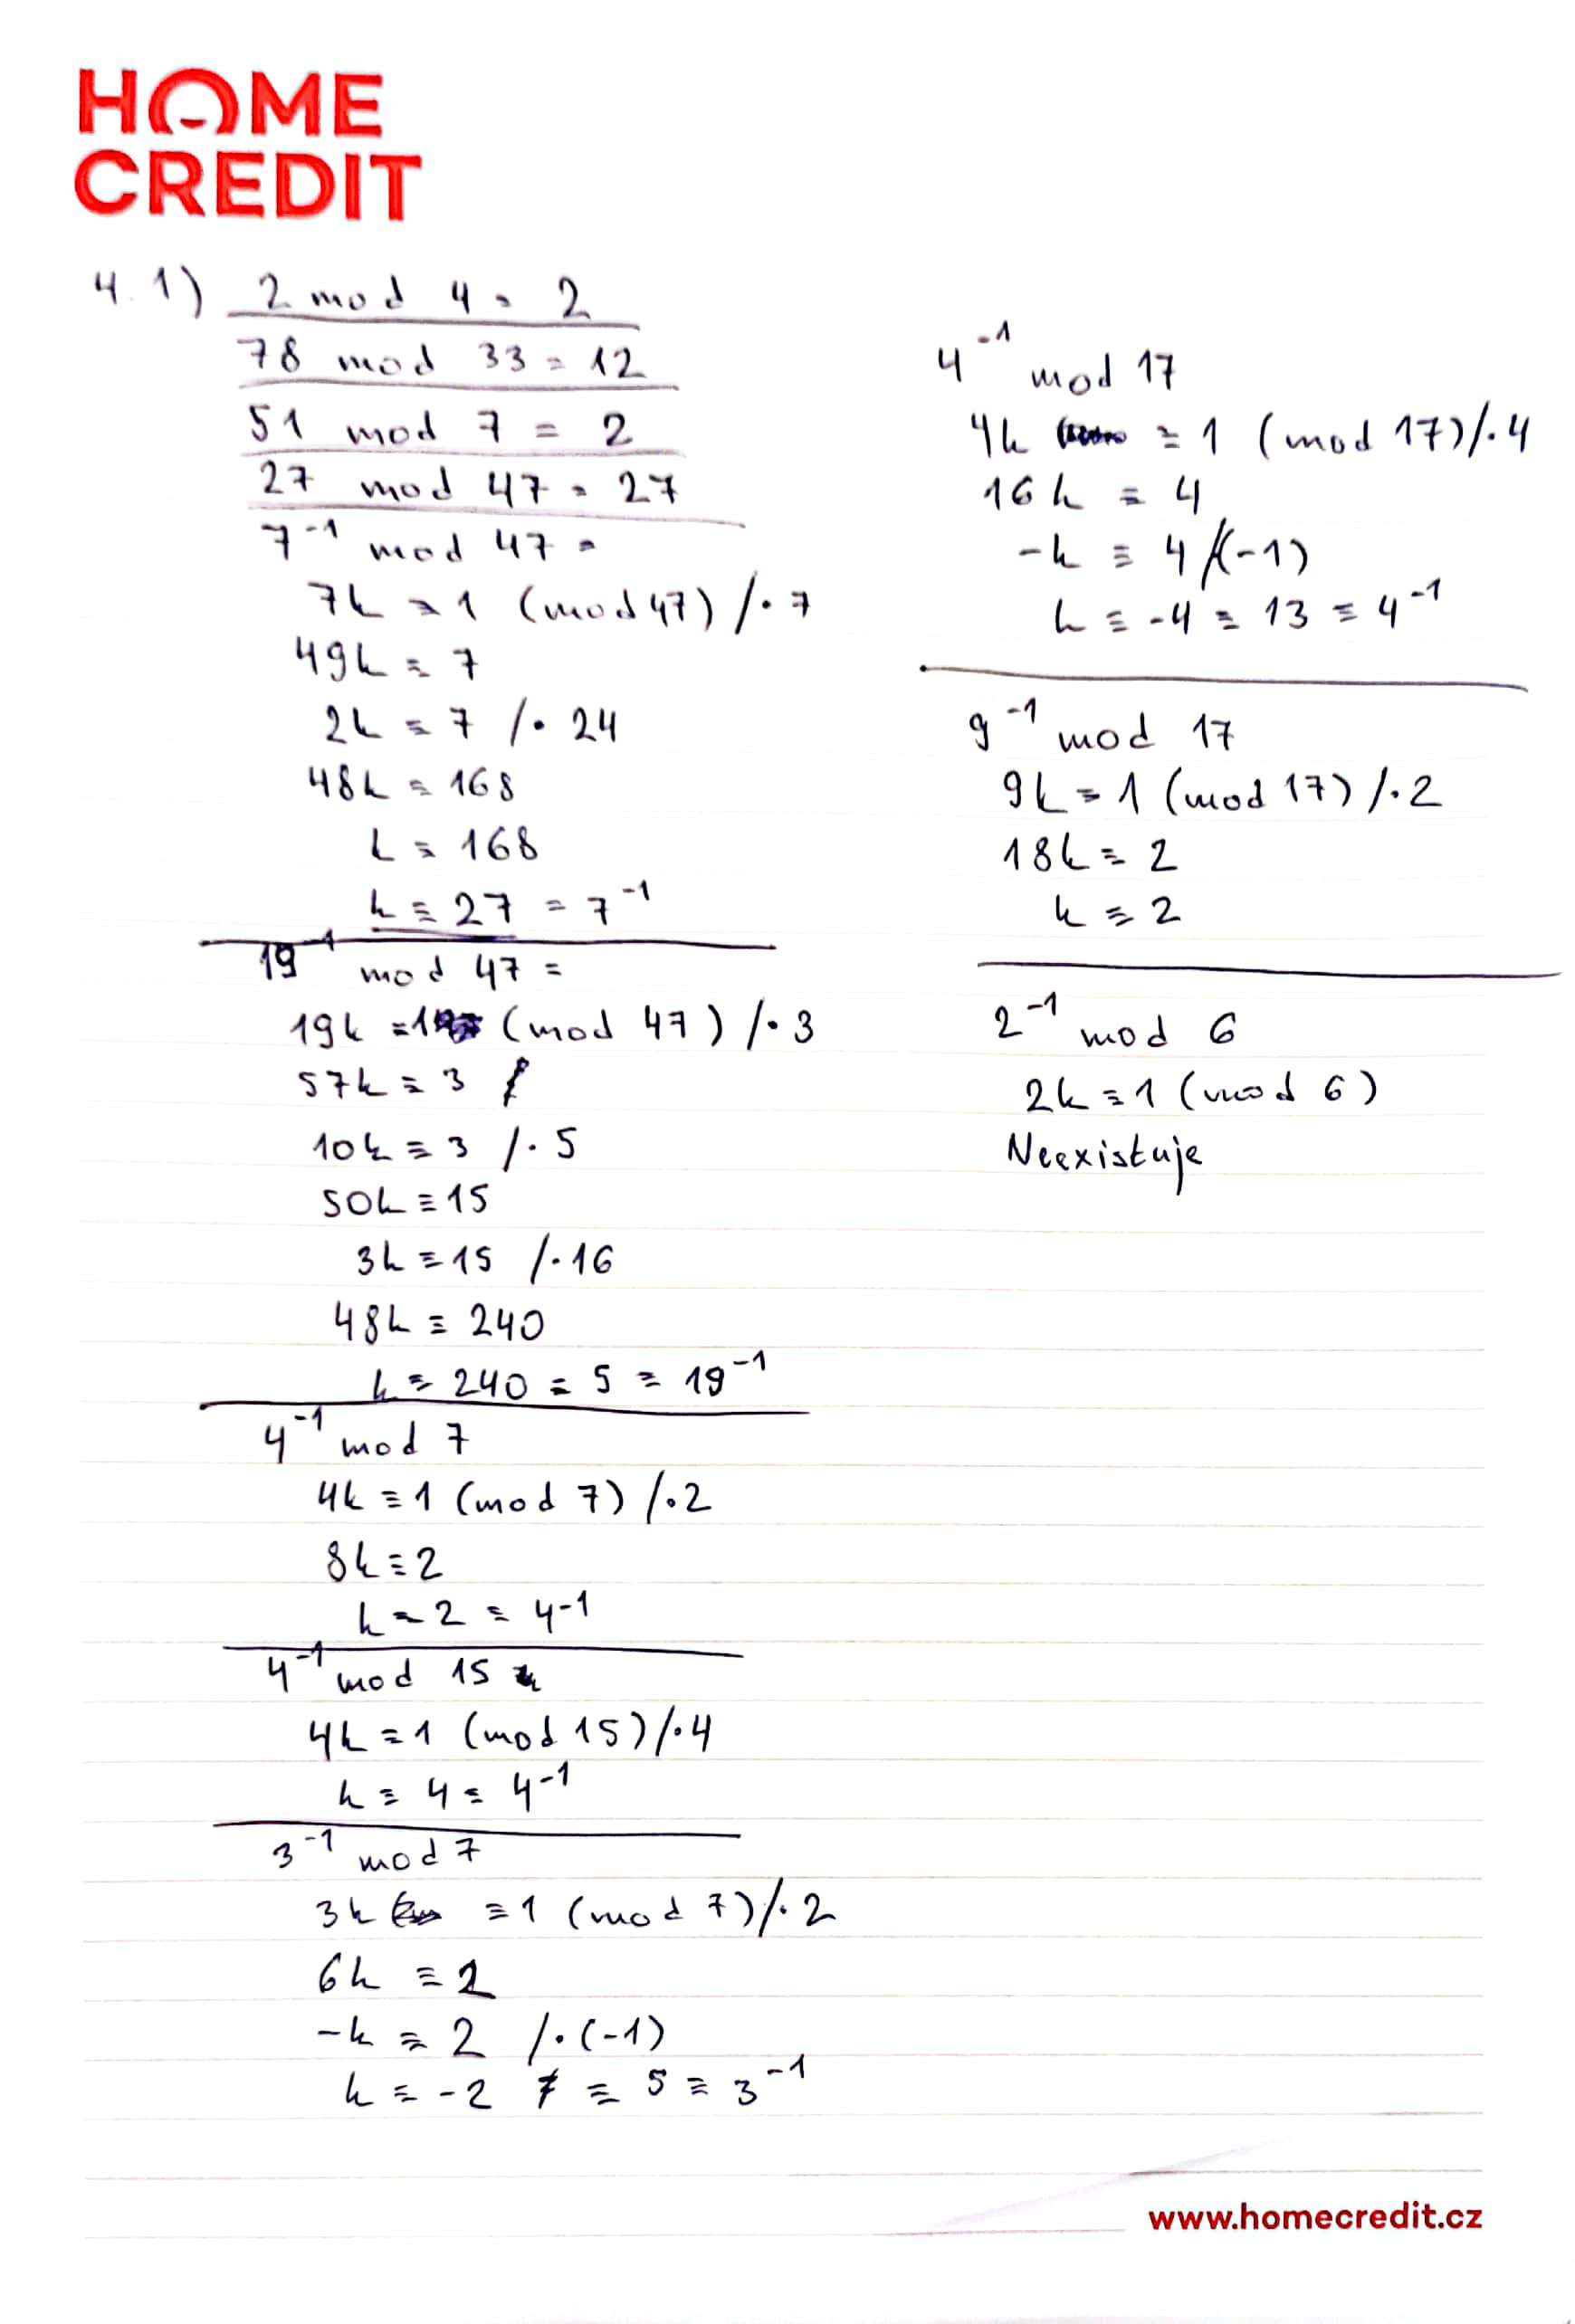 HOME
CREDIT
4.1) 2 mod 4 = 2
78 mod 33 = 12
51 mod 7 = 2
27 mod 47 = 27
7⁻¹ mod 47 =
7k ≡ 1 (mod 47) /· 7
49k ≡ 7
2k ≡ 7 /· 24
48k ≡ 168
k ≡ 168
k ≡ 27 = 7⁻¹
19⁻¹ mod 47 =
19k ≡ 1 (mod 47) /· 3
57k ≡ 3
10k ≡ 3 /· 5
50k ≡ 15
3k ≡ 15 /· 16
48k ≡ 240
k ≡ 240 ≡ 5 ≡ 19⁻¹
4⁻¹ mod 7
4k ≡ 1 (mod 7) /· 2
8k ≡ 2
k = 2 ≡ 4⁻¹
4⁻¹ mod 15
4k ≡ 1 (mod 15) /· 4
k ≡ 4 ≡ 4⁻¹
3⁻¹ mod 7
3k ≡ 1 (mod 7) /· 2
6k ≡ 2
-k ≡ 2 /· (-1)
k ≡ -2 ≡ 5 ≡ 3⁻¹
4⁻¹ mod 17
4k ≡ 1 (mod 17) /· 4
16k ≡ 4
-k ≡ 4 /(-1)
k ≡ -4 ≡ 13 ≡ 4⁻¹
9⁻¹ mod 17
9k ≡ 1 (mod 17) /· 2
18k ≡ 2
k ≡ 2
2⁻¹ mod 6
2k ≡ 1 (mod 6)
Neexistuje
www.homecredit.cz